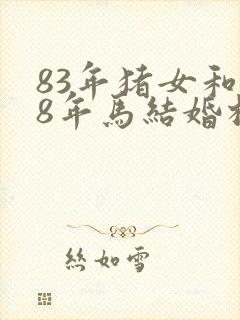 83年猪女和
8年馬結婚
絲如雪